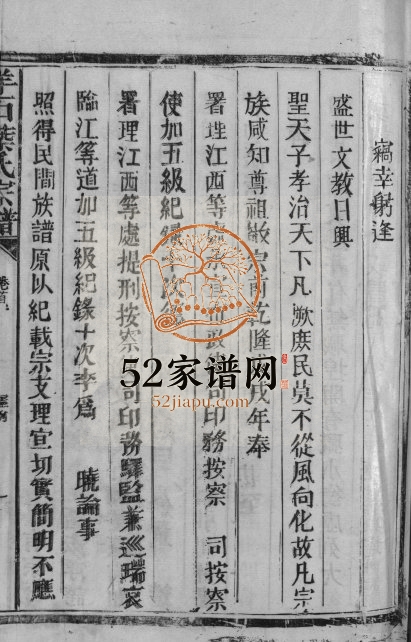 竊幸躬逢
盛世文教日興
聖天子孝治天下凡厥庶民莫不從風向化故凡宗
族咸知尊祖敬宗前乾隆戊年奉
署理江西等司印務按察 司按察
使加五級紀錄十次
署理江西等處提刑按察司印務驛鹽兼巡瑞袁
臨江等道加五級紀錄十次李爲 曉諭事
照得民間族譜原以紀載宗支理宜切實簡明不應
葉氏宗譜
卷首
52家谱网
52jiapu.com